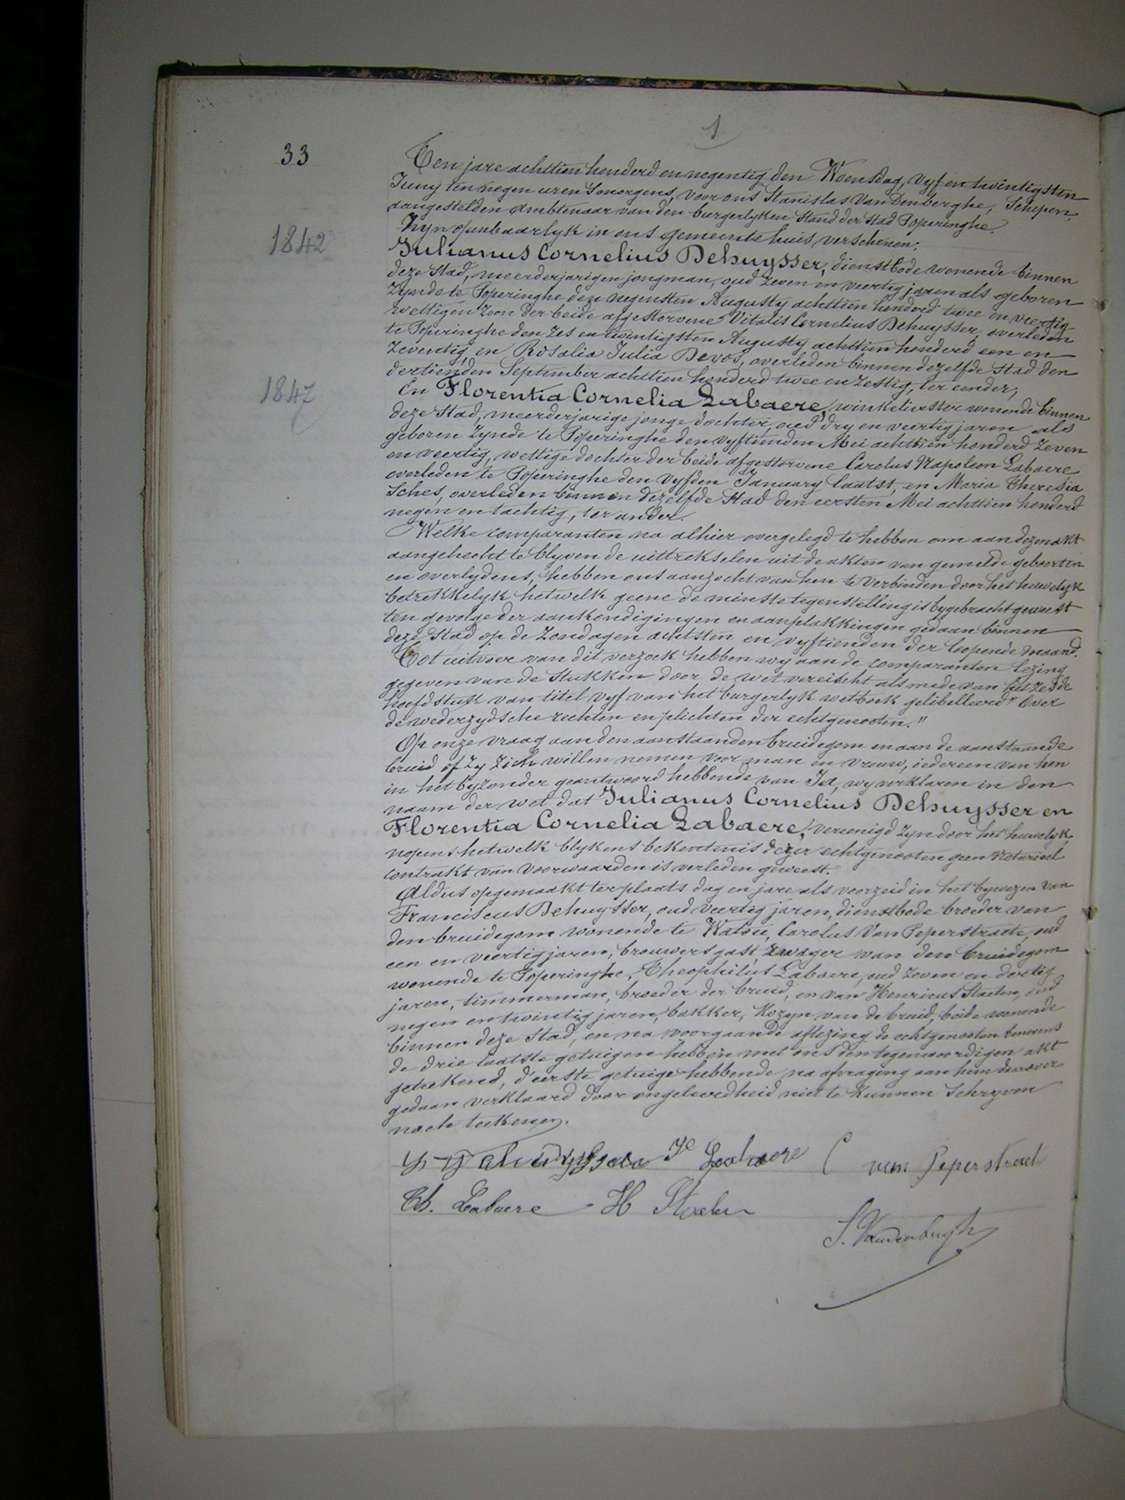 1
33
Ten jare achttien honderd en negentig den Woensdag, vyf en twintigsten
Juny ten negen uren s'morgens, voor ons Stanislas Van Denberghe, Schepen,
aangestelden Ambtenaar van den burgerlyken Stand der Stad Poperinghe.
Zyn openbaarlyk in ons gemeente huis, verschenen:
1842
Julianus Cornelius Dehuysser, dienstbode wonende binnen
deze Stad, meerderjarigen jongman, oud zeven en veertig jaren als geboren
zynde te Poperinghe den negensten Augusty achttien honderd twee en veertig
wettigen zoon der beide afgestorvene Vitalis Cornelius Dehuysser, overleden
te Poperinghe den zes en twintigsten Augusty achttien honderd een en
zeventig, en Rosalia Julia Devos, overleden binnen dezelfde Stad den
dertienden September achttien honderd twee en zestig, ter eender;
1847
En Florentia Cornelia Labaere, winkelierster wonende binnen
deze Stad, meerderjarige jonge dochter, oud dry en veertig jaren als
geboren zynde te Poperinghe den vyftienden Mei achttien honderd zeven
en veertig, wettige dochter der beide afgestorvene Carolus Napoleon Labaere
overleden te Poperinghe den vyfden January laatst, en Maria Theresia
Sches, overleden binnen dezelfde Stad den eersten Mei achttien honderd
negen en tachtig, ter ander.
Welke comparanten na alhier overgelegd te hebben om aan dezen akt
aangehecht te blyven de uittrekselen uit de akten van gemelde geboorten
en overlydens, hebben ons aanzocht van hen te verbinden door het huwelyk
betrekkelyk hetwelk geene de minste tegenstelling is bygebracht geweest
ten gevolge der aankondigingen en aanplakkingen gedaan binnen
deze Stad op de Zondagen achtsten en vyftienden der loopende maand.
Tot uitvoer van dit verzoek hebben wy aan de comparanten lezing
gegeven van de stukken door de wet vereischt alsmede van het zesde
hoofdstuk van titel vyf van het burgerlyk wetboek gelibelleerd "Over
de wederzydsche rechten en plichten der echtgenooten."
Op onze vraag aan den aanstaanden bruidegom en aan de aanstaande
bruid of zy zich willen nemen voor man en vrouw, iedereen van hen
in het byzonder geantwoord hebbende van Ja, wy verklaren in den
naam der wet dat Julianus Cornelius Dehuysser en
Florentia Cornelia Labaere, vereenigd zyn door het huwelyk,
nopens hetwelk blykens bekentenis dezer echtgenooten geen notarieel
contrakt van voorwaarden is verleden geweest.
Aldus opgemaakt ter plaats dag en jare als voorzeid in het bywezen van
Franciscus Dehuysser, oud veertig jaren, dienstbode broeder van
den bruidegom wonende te Watou, Carolus Van Peperstraete, oud
een en veertig jaren, brouwersgast, zwager van den bruidegom
wonende te Poperinghe, Theophilus Labaere, oud zeven en dertig
jaren, timmerman, broeder der bruid, en van Henricus Staelen, oud
negen en twintig jaren, bakker, kozyn van de bruid, beide wonende
binnen deze Stad, en na voorgaande aflezing de echtgenooten benevens
de drie laatste getuigen hebben met ons den tegenwoordigen akt
geteekend, d'eerste getuige hebbende na afvraging aan hem daarover
gedaan verklaard door ongeleerdheid niet te kunnen schryven
noch teekenen.
Fe Labaere C van Peperstraet
Th. Labaere H Staelen
S. Vandenberghe